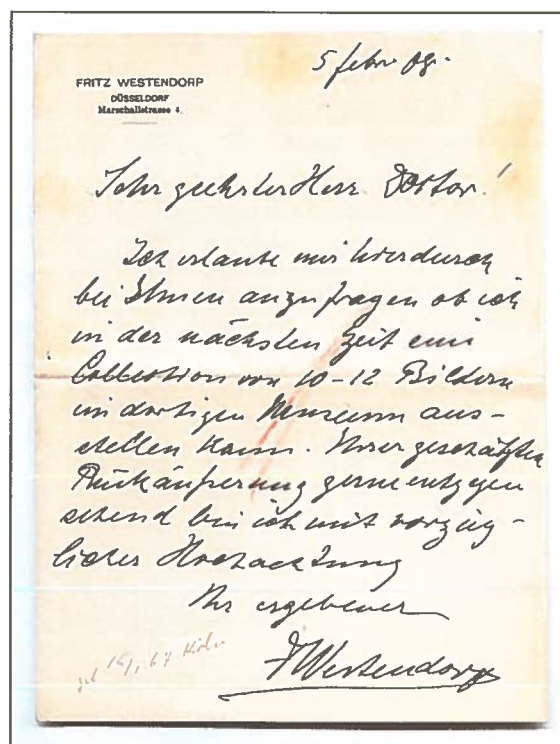 5 febr. 09.
FRITZ WESTENDORP
DÜSSELDORF
Marschallstrasse 4.
Sehr geehrter Herr Doktor!
Ich erlaube mir hierdurch
bei Ihnen anzufragen ob ich
in der nächsten Zeit eine
Collection von 10-12 Bildern
im dortigen Museum aus-
stellen kann. Ihrer geschätzten
Rückäußerung gerne entgegen
sehend bin ich mit vorzüg-
licher Hochachtung
Ihr ergebener
FWestendorp
geb 16/1. 67 Köln